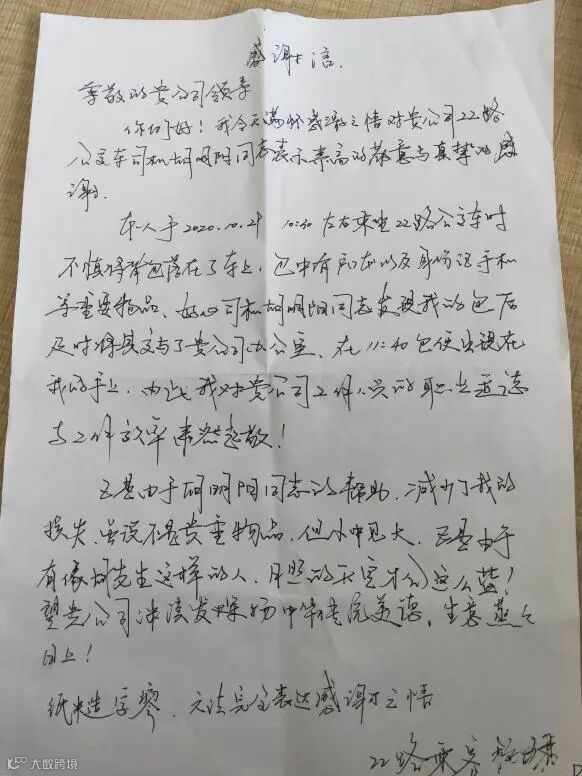 感谢信
尊敬的贵公司领导
你们好！我今天满怀感激之情对贵公司22路
公交车司机胡明阳同志表示崇高的敬意与真挚的感
谢。
本人于2020.10.29 10:30左右乘坐22路公交车时
不慎将背包落在了车上，包中有以及身份证手机
等重要物品，好心司机胡明阳同志发现我的包后
及时将其交与了贵公司办公室，在11:40包便出现在
我的手上，由此我对贵公司工作人员的职业道德
与工作效率肃然起敬！
正是由于胡明阳同志的帮助，减少了我的
损失，虽说不是贵重物品，但小中见大，正是由于
有像胡先生这样的人，日照的天空才会这么蓝！
望贵公司继续发扬中华传统美德，生意蒸蒸
日上！
纸短字廖，无法完全表达感谢之情
22路乘客
大数跨境